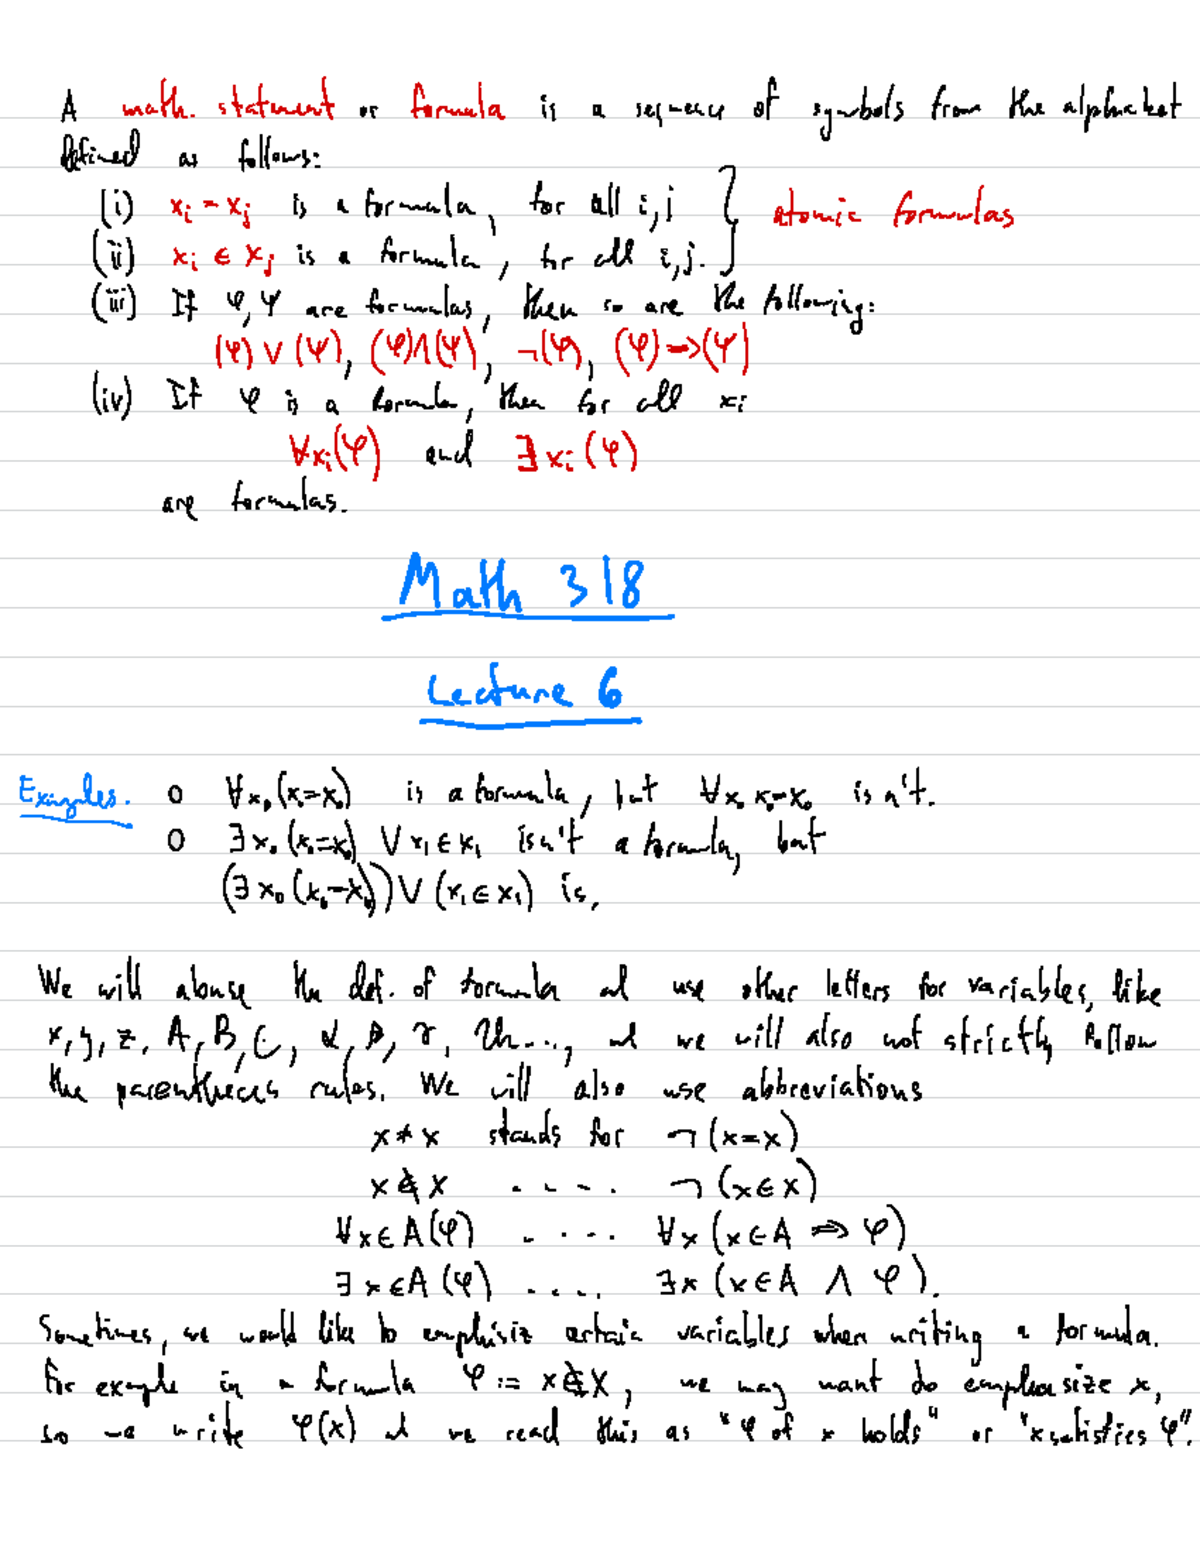 A math. statement or formula is a sequence of symbols from the alphabet
defined as follows:
(i) xᵢ = xⱼ is a formula, for all i,j } atomic formulas
(ii) xᵢ ∈ xⱼ is a formula, for all i,j.
(iii) If φ, ψ are formulas, then so are the following:
(φ) ∨ (ψ), (φ) ∧ (ψ), ¬(φ), (φ) ⇒ (ψ)
(iv) If φ is a formula, then for all xᵢ
∀xᵢ(φ) and ∃xᵢ(φ)
are formulas.
Math 318
Lecture 6
Examples. o ∀x₀(x₀=x₀) is a formula, but ∀x₀ x₀=x₀ isn't.
o ∃x₀(x₀=x₀) ∨ x₁∈x₁ isn't a formula, but
(∃x₀(x₀=x₀)) ∨ (x₁∈x₁) is.
We will abuse the def. of formula and use other letters for variables, like
x, y, z, A, B, C, α, β, γ, ..., and we will also not strictly follow
the parentheses rules. We will also use abbreviations
x ≠ x stands for ¬(x=x)
x ∉ x ..... ¬(x∈x)
∀x∈A(φ) ..... ∀x(x∈A ⇒ φ)
∃x∈A(φ) ..... ∃x(x∈A ∧ φ).
Sometimes, we would like to emphisiz certain variables when writing a formula.
For example in a formula φ := x∉x, we may want do emphasize x,
so we write φ(x) and we read this as "φ of x holds" or "x satisfies φ".